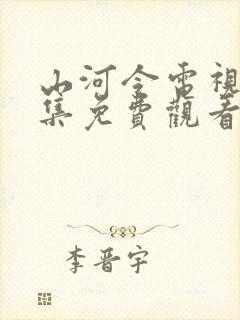 山河令電視
集免費觀看
李晋宇